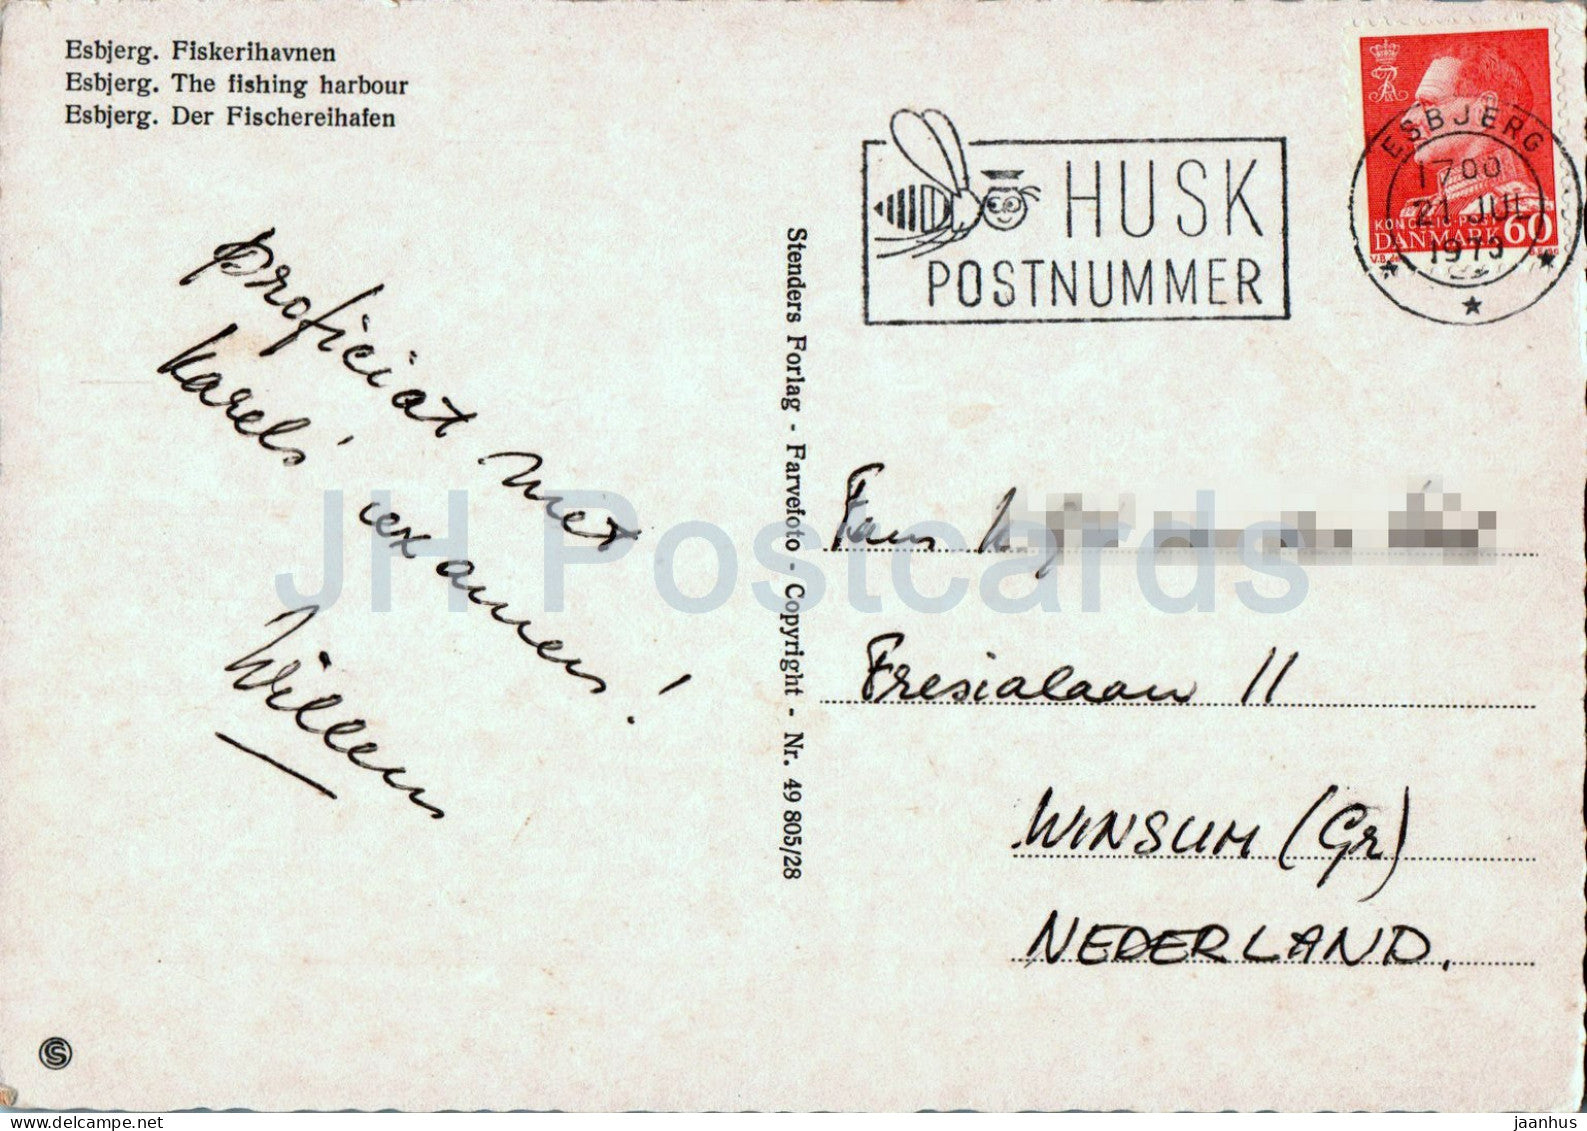 Esbjerg. Fiskerihavnen
Esbjerg. The fishing harbour
Esbjerg. Der Fischereihafen
HUSK
POSTNUMMER
ESBJERG
1700
21 JUL
1973
DANMARK 60
proficiat met
Karels' examen!
Willem
Stenders Forlag - Farvefoto - Copyright - Nr. 49 805/28
Fam
Fresialaan 11
WINSUM (Gr)
NEDERLAND.
JH Postcards
S
jaanhus
delcampe.net